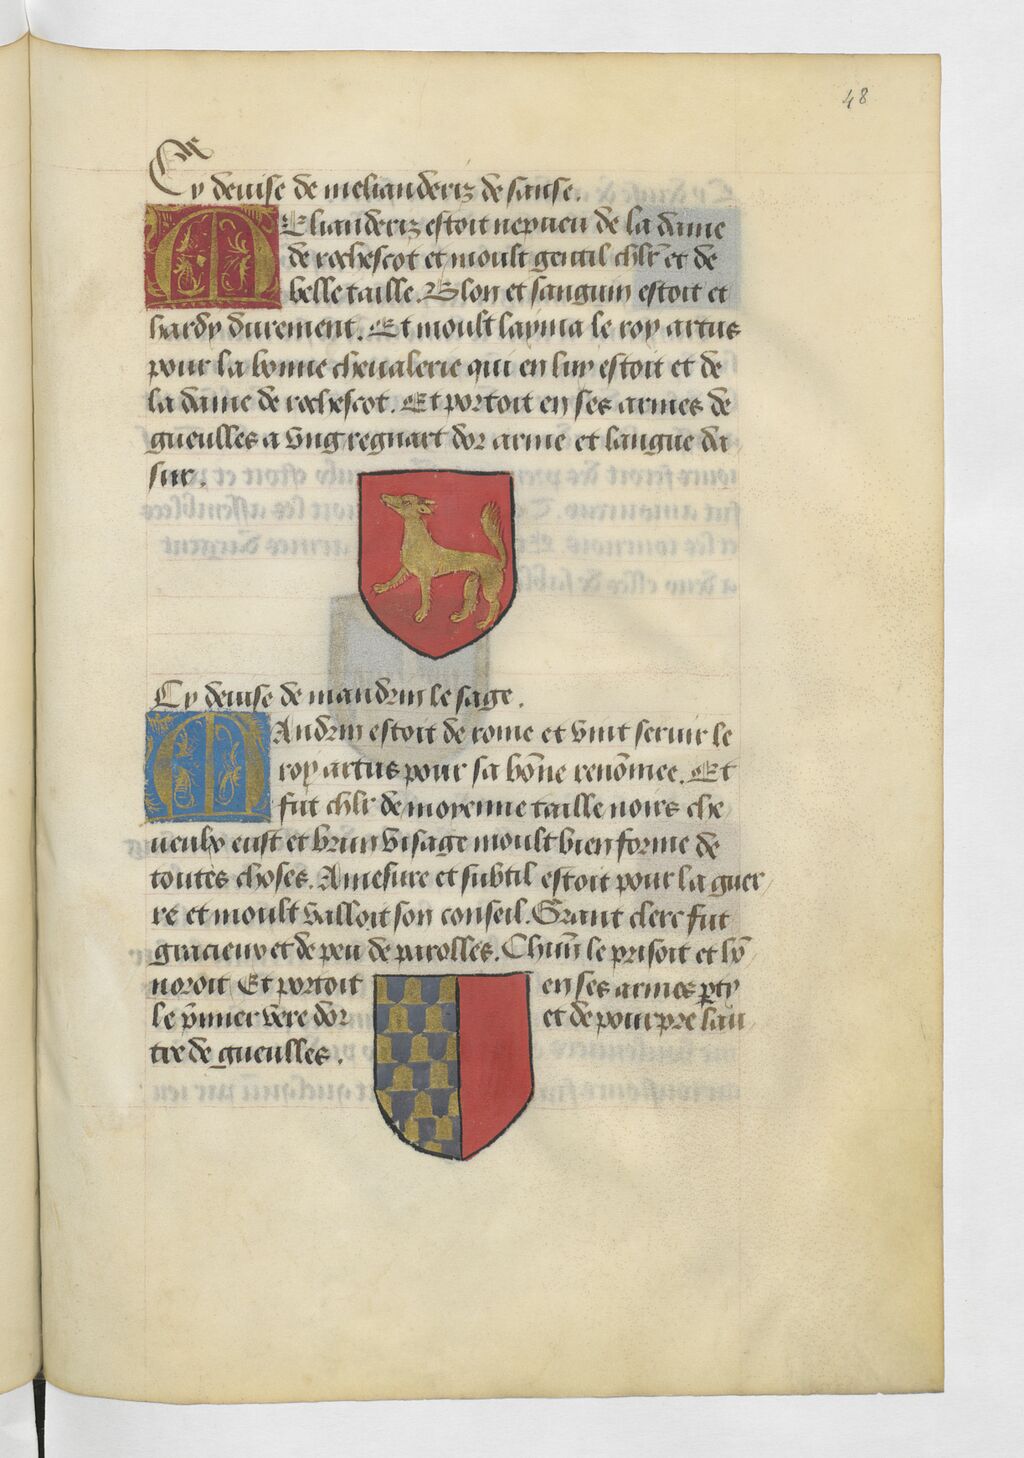 48
Cy deuise de melianderiz de sanse.
MElianderiz estoit nepueu de la dame
de rochescot et moult gentil chlr et de
belle taille. Blon et sanguin estoit et
hardy durement. Et moult layma le roy artus
pour la bonne cheualerie qui en luy estoit et de
la dame de rochescot. Et portoit en ses armes de
gueulles a vng regnart dor arme et langue da
sur.
Cy deuise de mandrin le sage.
MAndrin estoit de rome et vint seruir le
roy artus pour sa bōne renōmee. Et
fut chlr de moyenne taille noirs che
ueulx eust et brun visage moult bien forme de
toutes choses. Amesure et subtil estoit pour la guer
re et moult valloit son conseil. Grant clerc fut
gracieux et de peu de parolles. Chūn le prisoit et hō
noroit Et portoit en ses armes pty
le p̄mier vere dor et de pourpre lau
tre de gueulles.